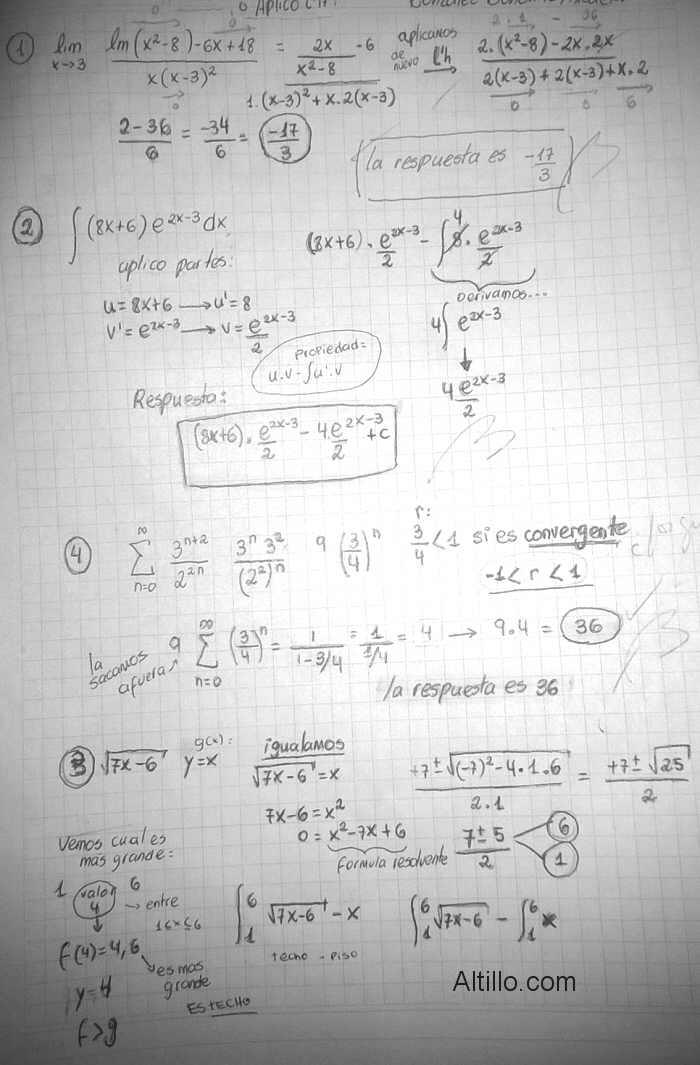 0 , 0 Aplico L'H.
① lim x→3 ln(x²-8)-6x+18 / x(x-3)² = 2x/(x²-8) - 6 / 1.(x-3)²+x.2(x-3) aplicamos de nuevo L'h 2.(x²-8)-2x.2x / 2(x-3)+2(x-3)+x.2
2.1 - 36
0 0 0 6
2-36/6 = -34/6 = -17/3
la respuesta es -17/3
② ∫(8x+6)e^(2x-3) dx
aplico partes:
u=8x+6 → u'=8
v'=e^(2x-3) → v=e^(2x-3)/2
propiedad=
u.v-∫u'.v
(8x+6).e^(2x-3)/2 - ∫8.e^(2x-3)/2
4
Derivamos...
4∫e^(2x-3)
↓
4e^(2x-3)/2
Respuesta:
(8x+6).e^(2x-3)/2 - 4.e^(2x-3)/2 +c
④ ∞ Σ n=0 3^(n+2)/2^(2n) 3^n 3²/(2²)^n 9 (3/4)^n r: 3/4<1 si es convergente
-1< r <1
la sacamos afuera 9 ∞ Σ n=0 (3/4)^n = 1/(1-3/4) = 1/(1/4) = 4 → 9.4 = 36
la respuesta es 36
③ √7x-6 g(x): y=x
igualamos
√7x-6 = x
7x-6=x²
0=x²-7x+6
formula resolvente
+7±√(-7)²-4.1.6 / 2.1 = +7±√25 / 2
7±5 / 2
6
1
Vemos cual es
mas grande:
1 valor 4 6
→ entre
1≤x≤6
f(4)=4,6
es mas
grande
y=4
ES TECHO
f>g
∫₁⁶ √7x-6 - x
techo - piso
∫₁⁶ √7x-6 - ∫₁⁶ x
Altillo.com